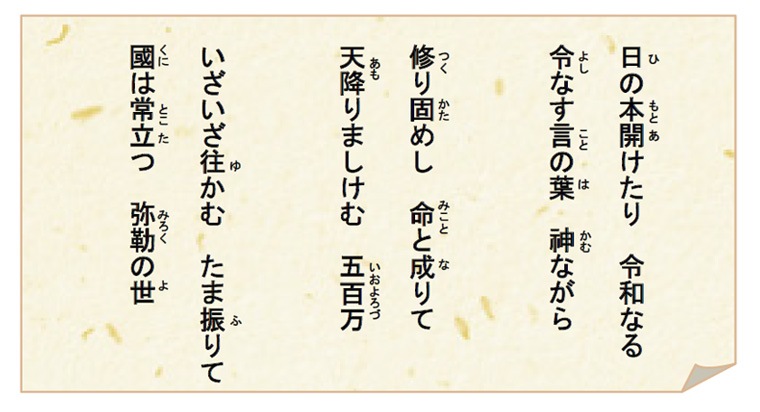 日の本開けたり　令和なる
令なす言の葉　神ながら
修り固めし　命と成りて
天降りましけむ　五百万
いざいざ往かむ　たま振りて
國は常立つ　弥勒の世